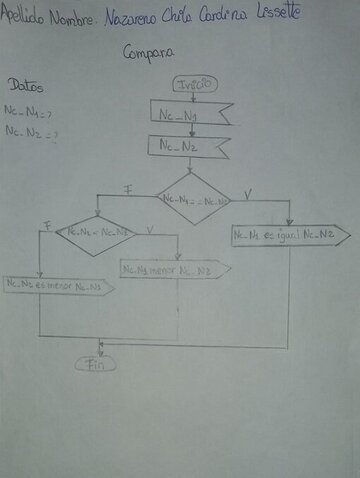 Apellido Nombre. Nazareno Chila Cardina Lissette
Compara
Datos
Nc_N1=?
Nc_N2=?
Inicio
Nc_N1
Nc_N2
F
Nc_N1==Nc_N2
V
F
Nc_N1<Nc_N2
V
Nc_N1 es igual Nc_N2
Nc_N1 menor Nc_N2
Nc_N2 es menor Nc_N1
Fin